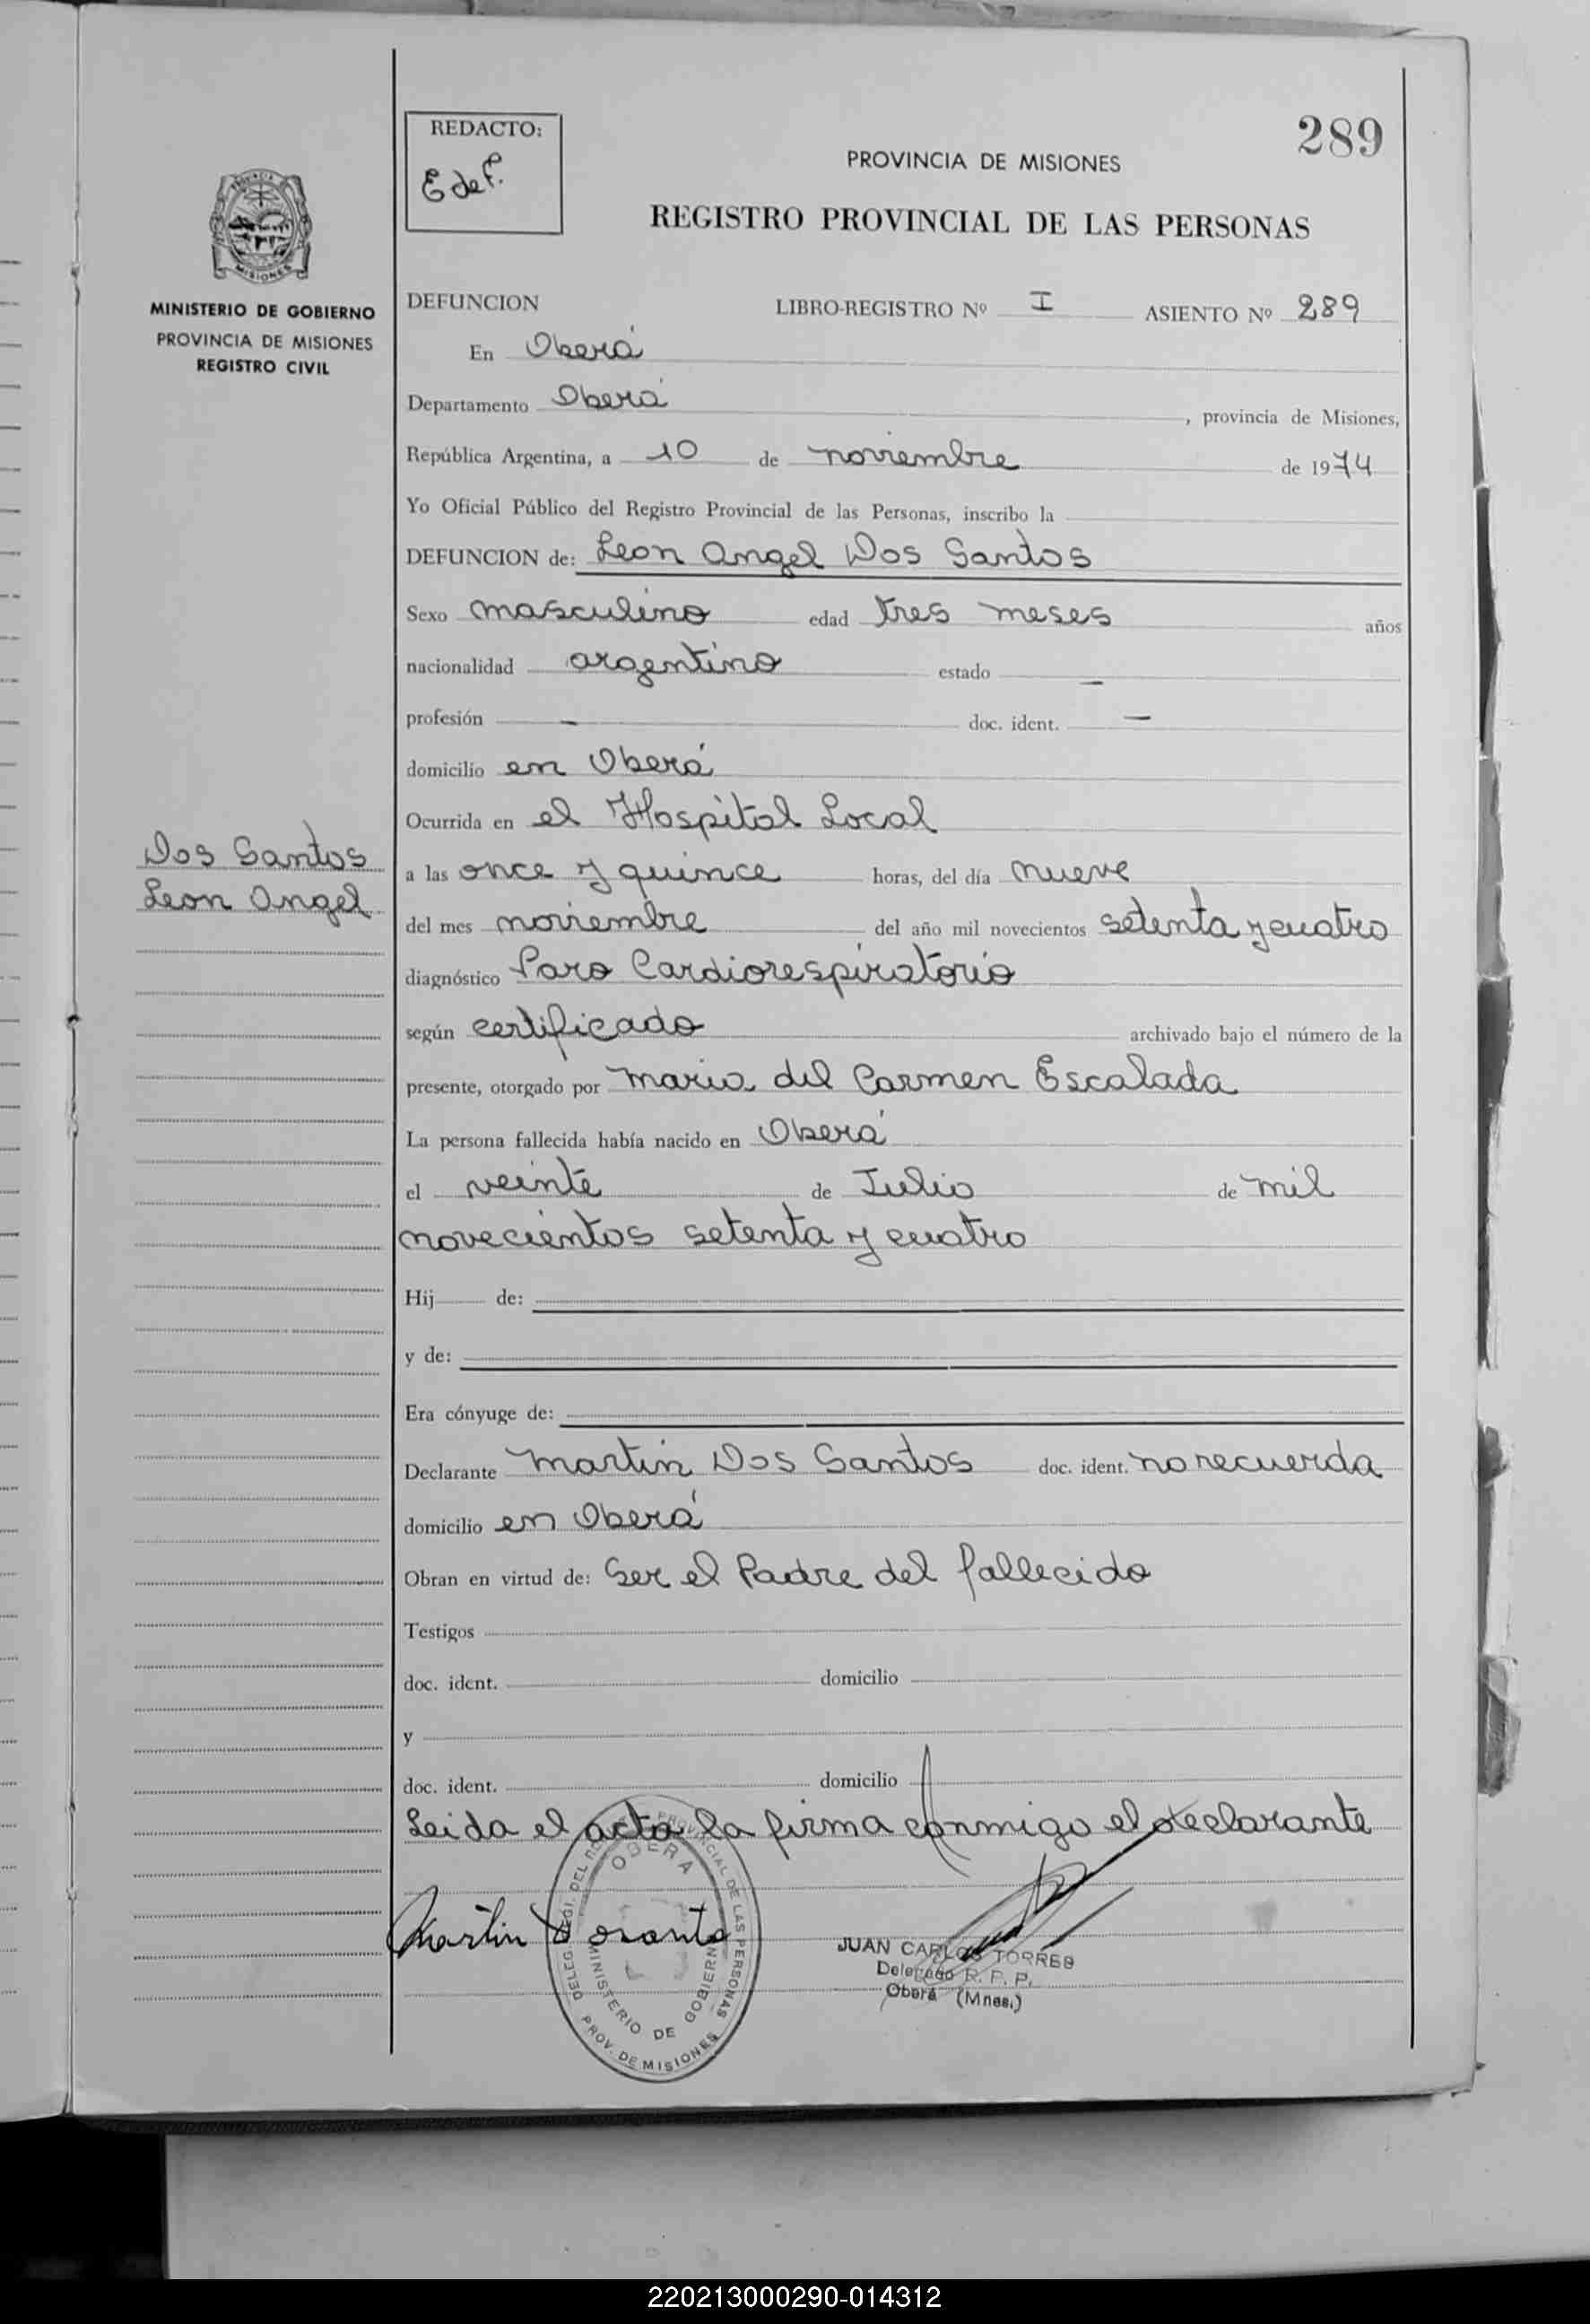 289
REDACTO:
E de F.
PROVINCIA DE MISIONES
REGISTRO PROVINCIAL DE LAS PERSONAS
MISIONES
MINISTERIO DE GOBIERNO
PROVINCIA DE MISIONES
REGISTRO CIVIL
DEFUNCION LIBRO-REGISTRO Nº I ASIENTO Nº 289
En Oberá
Departamento Oberá, provincia de Misiones,
República Argentina, a 10 de noviembre de 1974
Yo Oficial Público del Registro Provincial de las Personas, inscribo la
DEFUNCION de: Leon Angel Dos Santos
Sexo masculino edad tres meses años
nacionalidad argentino estado —
profesión — doc. ident. —
domicilio en Oberá
Ocurrida en el Hospital Local
Dos Santos
Leon Angel
a las once y quince horas, del día nueve
del mes noviembre del año mil novecientos setenta y cuatro
diagnóstico Paro Cardiorespiratorio
según certificado archivado bajo el número de la
presente, otorgado por Maria del Carmen Escalada
La persona fallecida había nacido en Oberá
el veinte de Julio de mil
novecientos setenta y cuatro
Hij de:
y de:
Era cónyuge de:
Declarante Martin Dos Santos doc. ident. no recuerda
domicilio en Oberá
Obran en virtud de: Ser el Padre del fallecido
Testigos
doc. ident. domicilio
y
doc. ident. domicilio
Leida el acta la firma conmigo el declarante
Martin Dosanto
OBERA
MINISTERIO DE GOBIERNO
PROV. DE MISIONES
JUAN CARLOS TORRES
Delegado R. P. P.
Oberá (Mnes.)
220213000290-014312